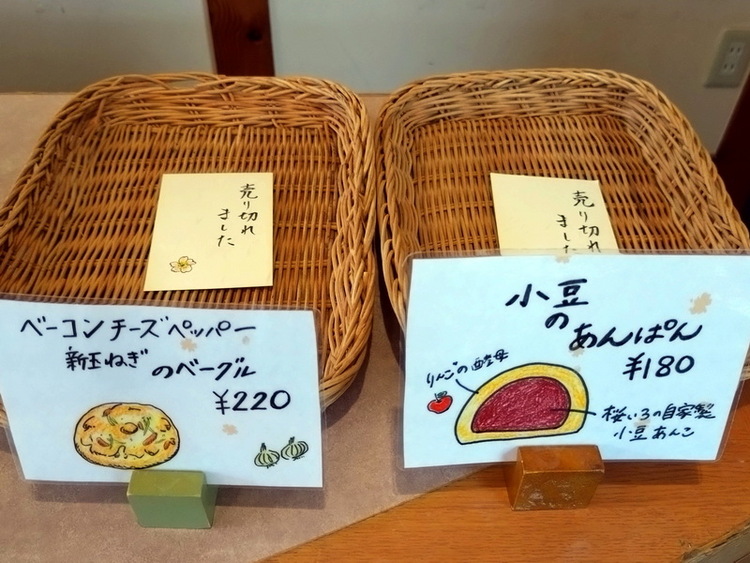 売り切れ
ました
売り切れ
ました
ベーコンチーズペッパー
新玉ねぎ
のベーグル
¥220
小豆
の
あんぱん
¥180
りんごの酵母
桜いろの自家製
小豆あんこ